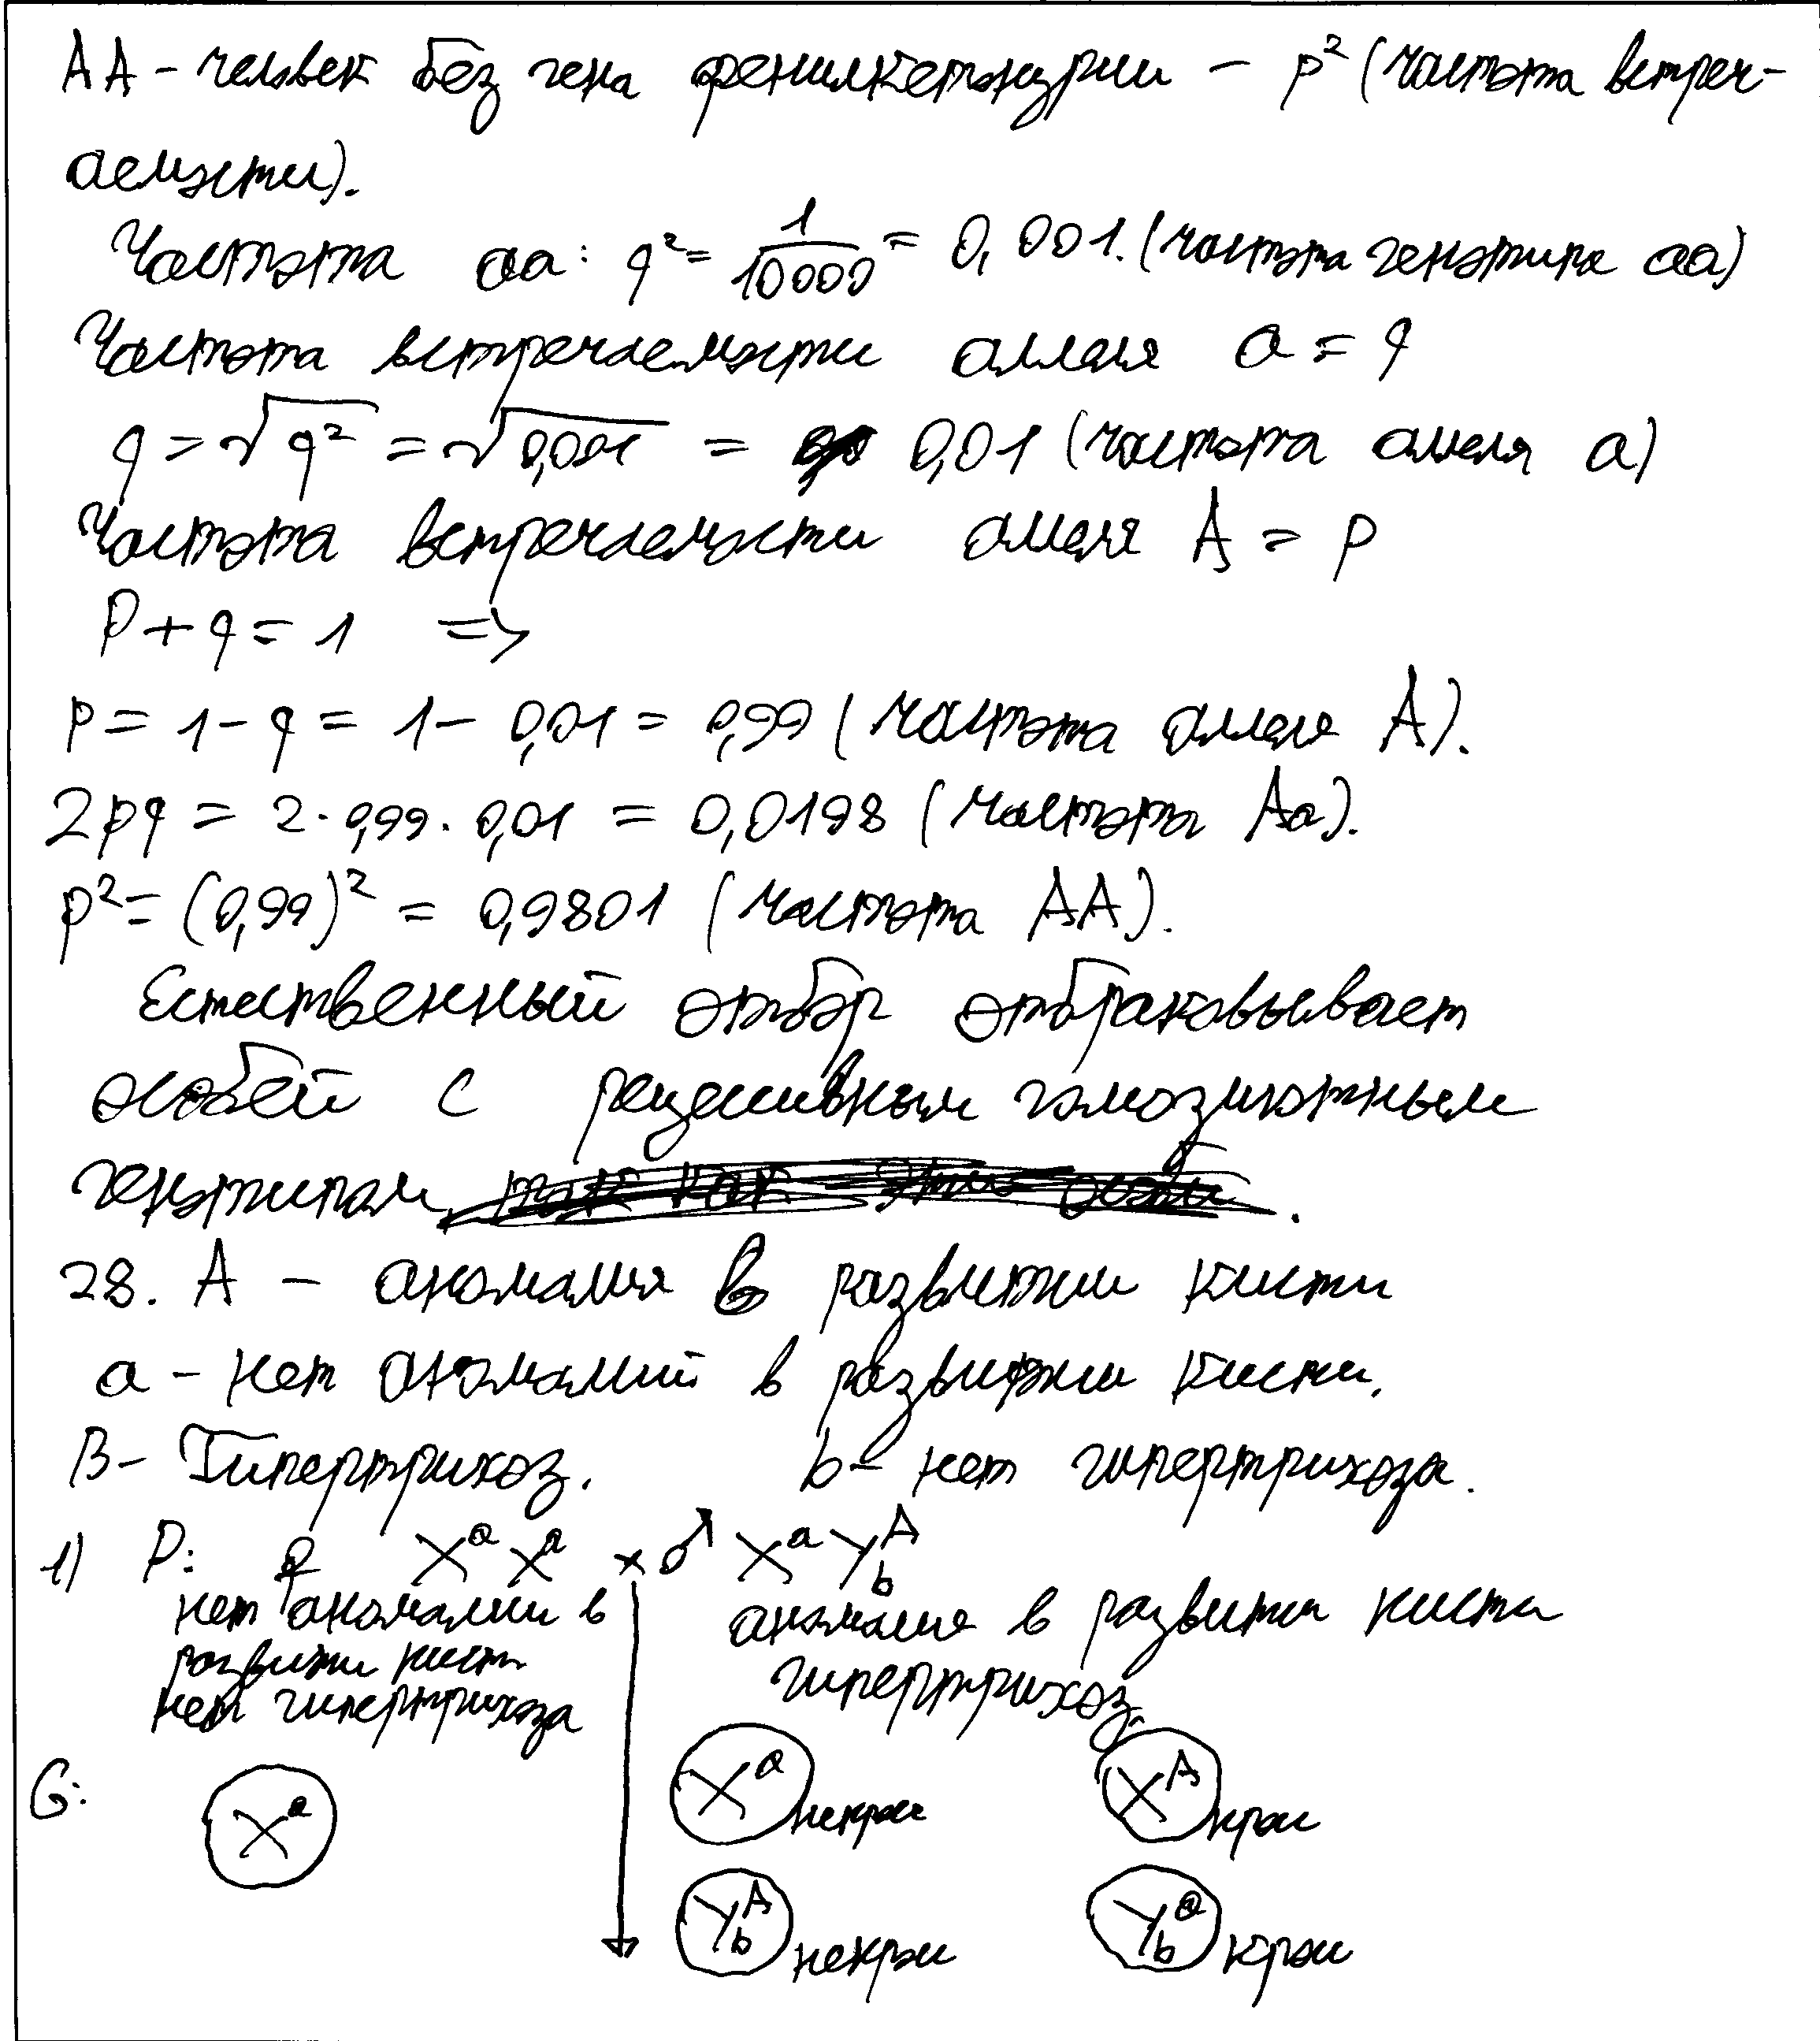 АА – человек без гена фенилкетонурии – p² (частота встреч-
аемости).
Частота аа: q² = 1/10000 = 0,001. (частота генотипа аа)
Частота встречаемости аллеля a = q
q = √q² = √0,001 = 0,01 (частота аллеля а)
Частота встречаемости аллеля А = p
P + q = 1 =>
p = 1 – q = 1 – 0,01 = 0,99 (частота аллеля А).
2pq = 2 · 0,99 · 0,01 = 0,0198 (частота Аа).
p² = (0,99)² = 0,9801 (частота АА).
Естественный отбор отбраковывает
особей с рецессивным гомозиготным
генотипом.
28. А – аномалия в развитии кисти
а – нет аномалий в развитии кисти.
B – Гипертрихоз. b – нет гипертрихоза.
1) P: ♀ XᵃXᵃ × ♂ XᵃYᴬb
нет аномалии в аномалия в развити кисти
развити кисти гипертрихоз.
нет гипертрихоза
G: Xᵃ Xᵃ некрос Xᴬ крос
Yᴬb некрос Yᵃb крос